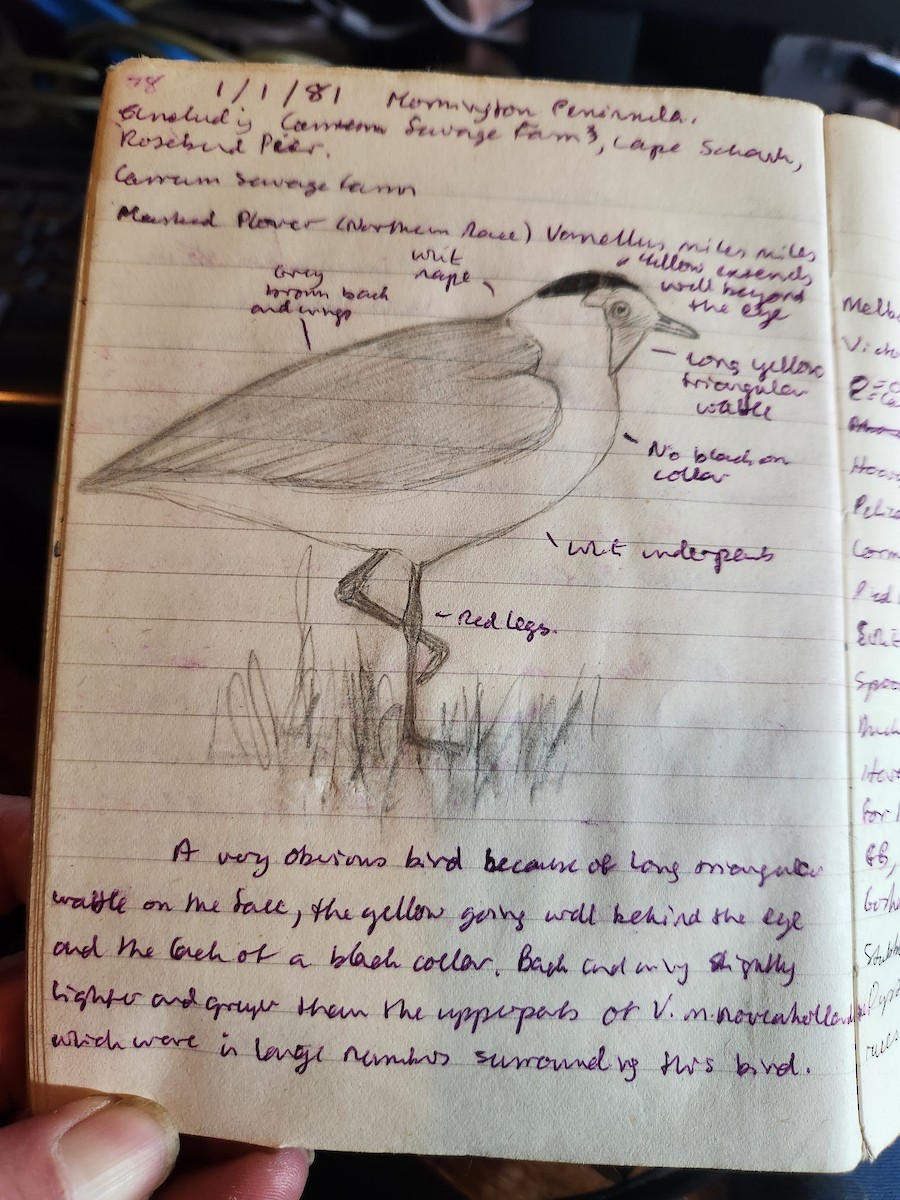 78
1/1/81 Mornington Peninsula.
Including Carrum Sewage Farm, Cape Schank,
Rosebud Pier.
Carrum Sewage Farm
Masked Plover (Northern Race) Vanellus miles miles
Grey
brown back
and wings
whit
nape
Yellow extends
well beyond
the eye
Long yellow
triangular
wattle
No black on
collar
whit underparts
Red legs.
A very obvious bird because of long triangular
wattle on the face, the yellow going well behind the eye
and the lack of a black collar. Back and wing slightly
lighter and greyer than the upperparts of V. m. novaehollandiae
which were in large numbers surrounding this bird.
Melb
Vict
Pelic
Corm
Pied
Spoo
Duck
For
GB,